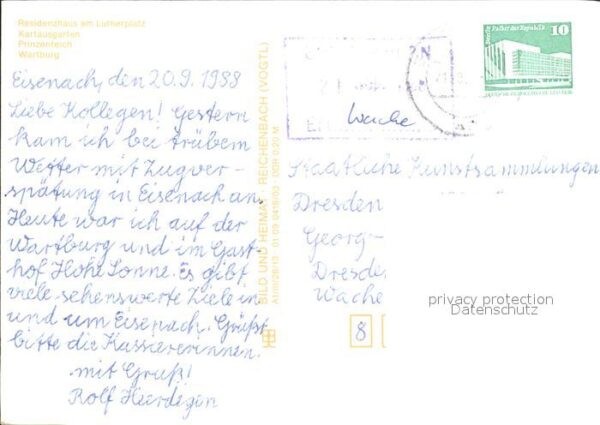 Residenzhaus am Lutherplatz
Kartausgarten
Prinzenteich
Wartburg
Eisenach, den 20.9.1988
Liebe Kollegen! Gestern
kam ich bei trübem
Wetter mit Zugver-
spätung in Eisenach an.
Heute war ich auf der
Wartburg und im Gast-
hof Hohe Sonne. Es gibt
viele sehenswerte Ziele in
und um Eisenach. Grüßt
bitte die Kassiererinnen.
mit Gruß!
Rolf Heerdegen
BILD UND HEIMAT REICHENBACH (VOGTL)
Wache
Berlin Palast der Republik
10
Staatliche Kunstsammlungen
Dresden
Georg-
Dresde
Wache
8
privacy protection
Datenschutz